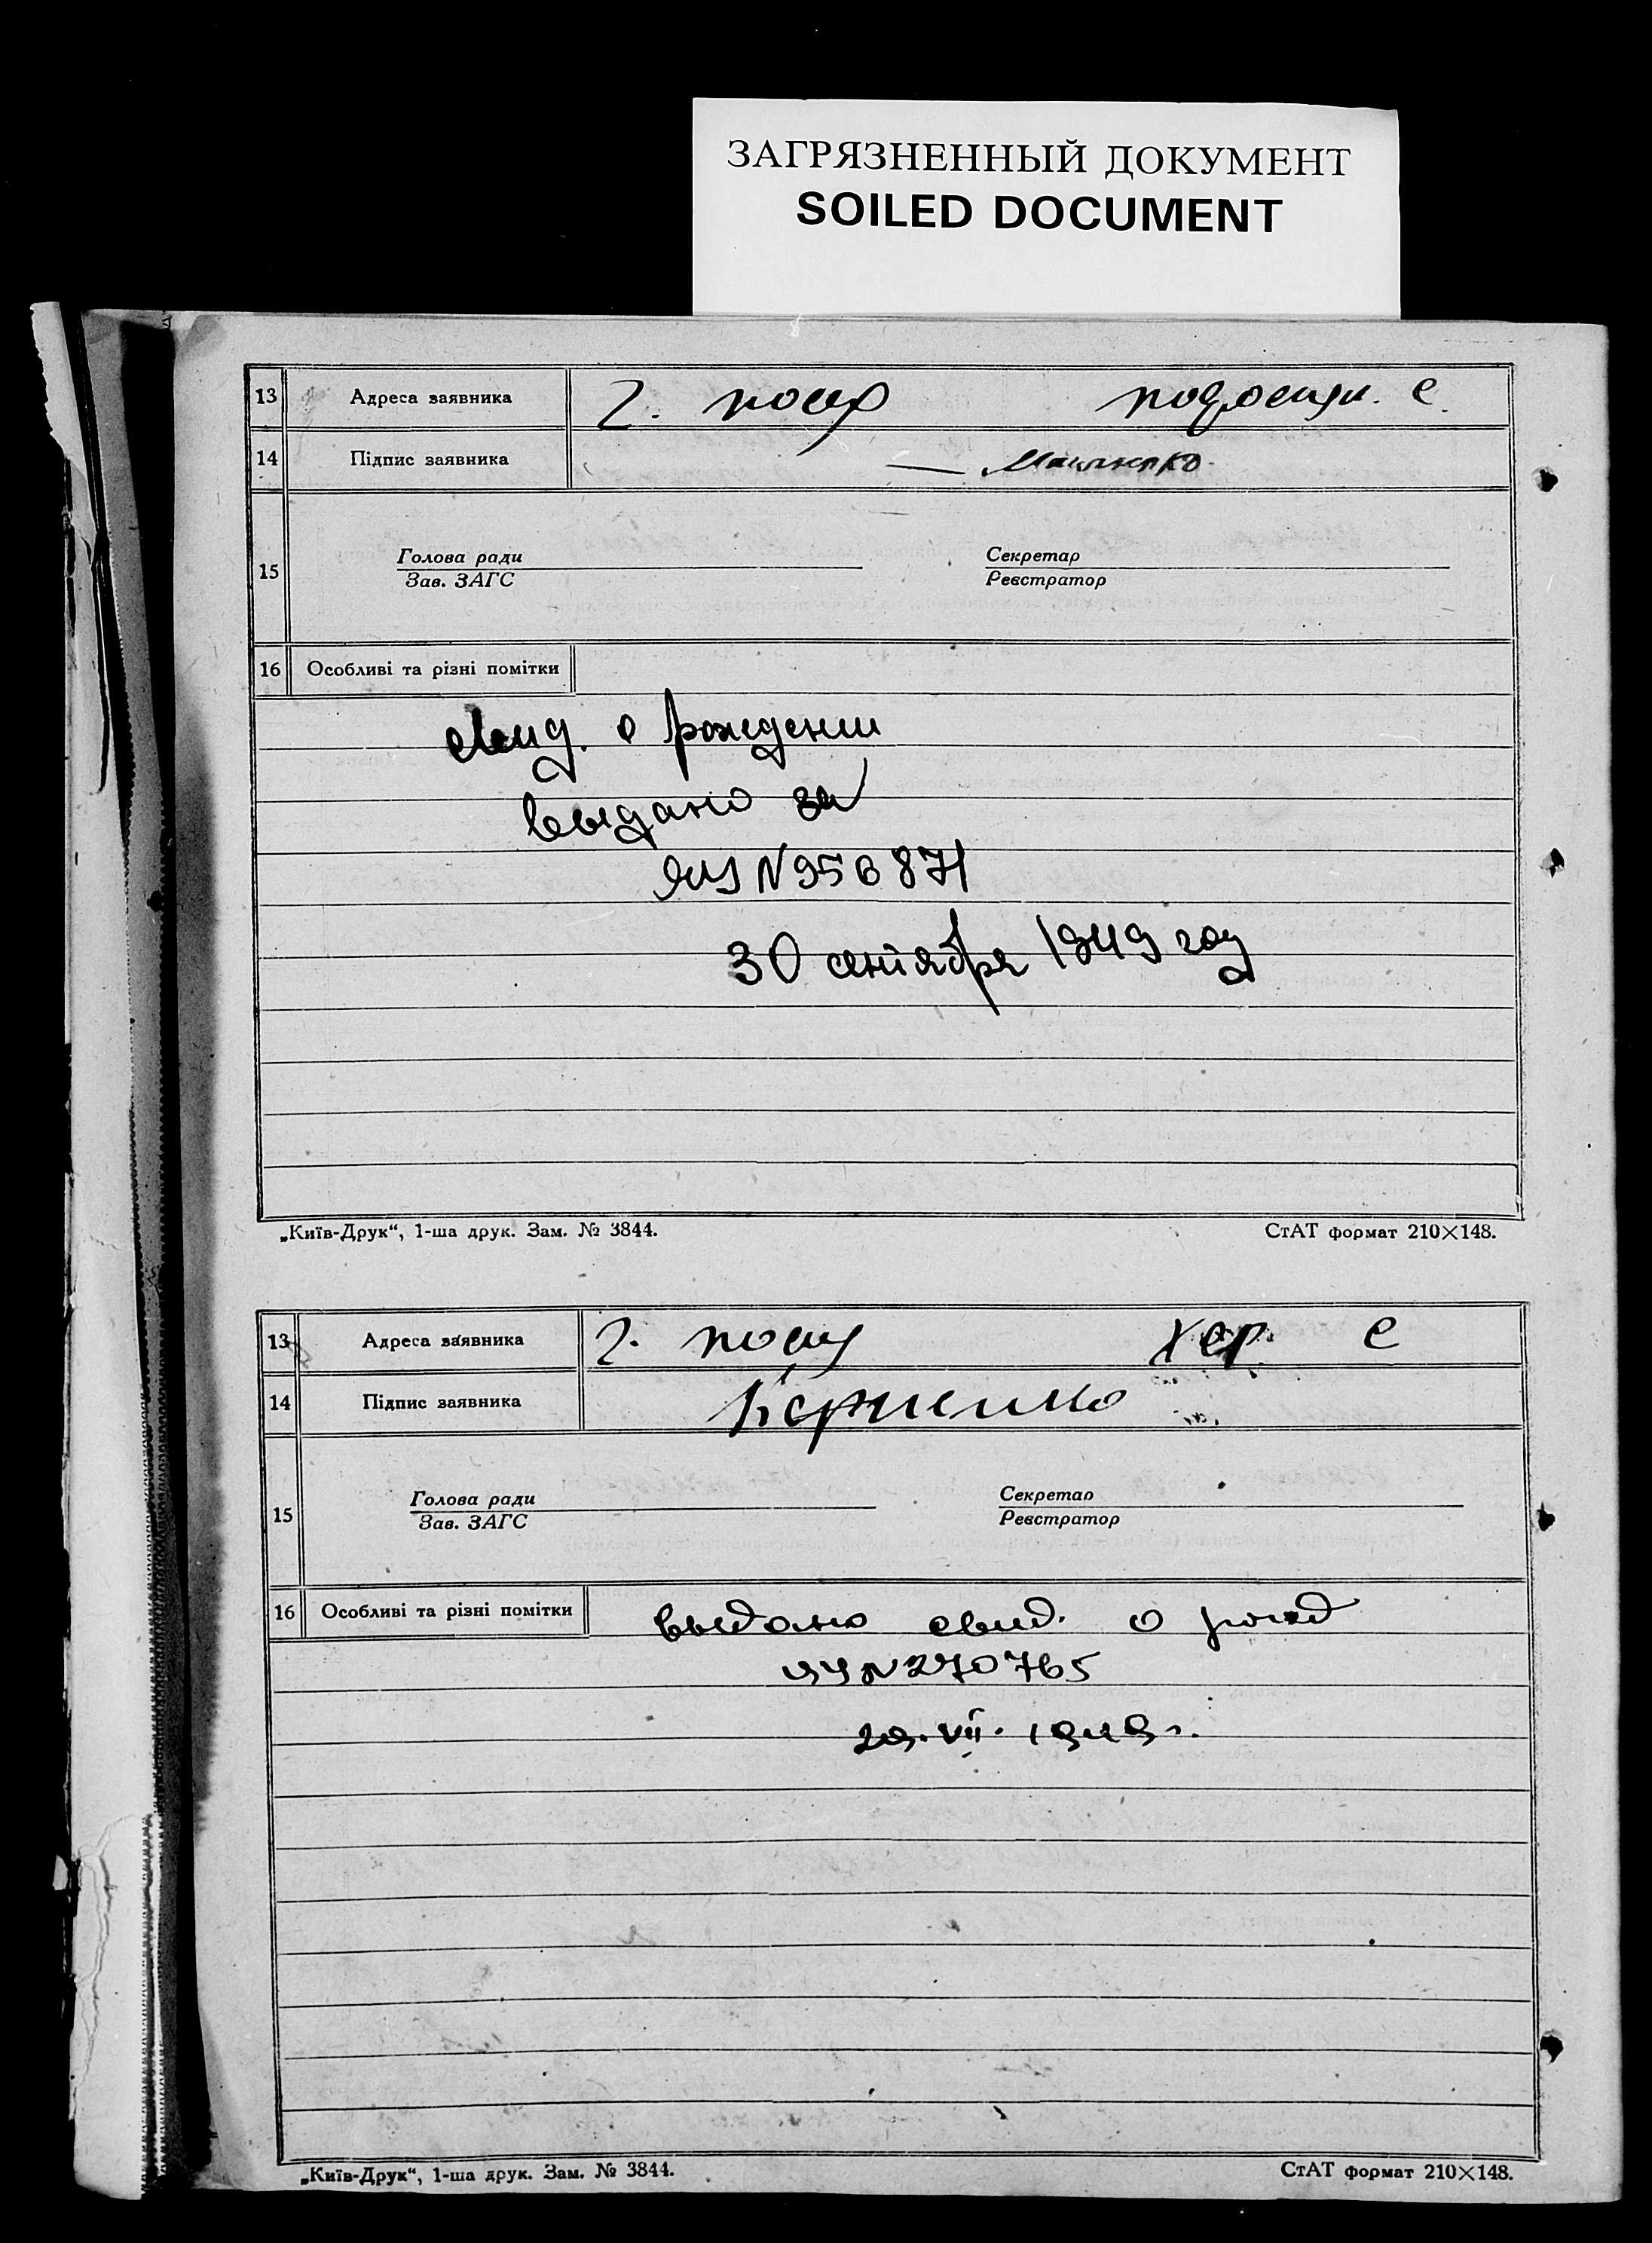 ЗАГРЯЗНЕННЫЙ ДОКУМЕНТ
SOILED DOCUMENT
13 Адреса заявника г.
14 Підпис заявника
Голова ради Секретар
15 Зав. ЗАГС Реєстратор
16 Особливі та різні помітки
свид. о рождении
выдано за
N 956871
30 сентября 1949 год
„Київ-Друк“, 1-ша друк. Зам. № 3844. СтАТ формат 210×148.
13 Адреса заявника г. Хер. с
14 Підпис заявника
Голова ради Секретар
15 Зав. ЗАГС Реєстратор
16 Особливі та різні помітки выдано свид. о рожд
N 270765
29. VII. 1949 г.
„Київ-Друк“, 1-ша друк. Зам. № 3844. СтАТ формат 210×148.